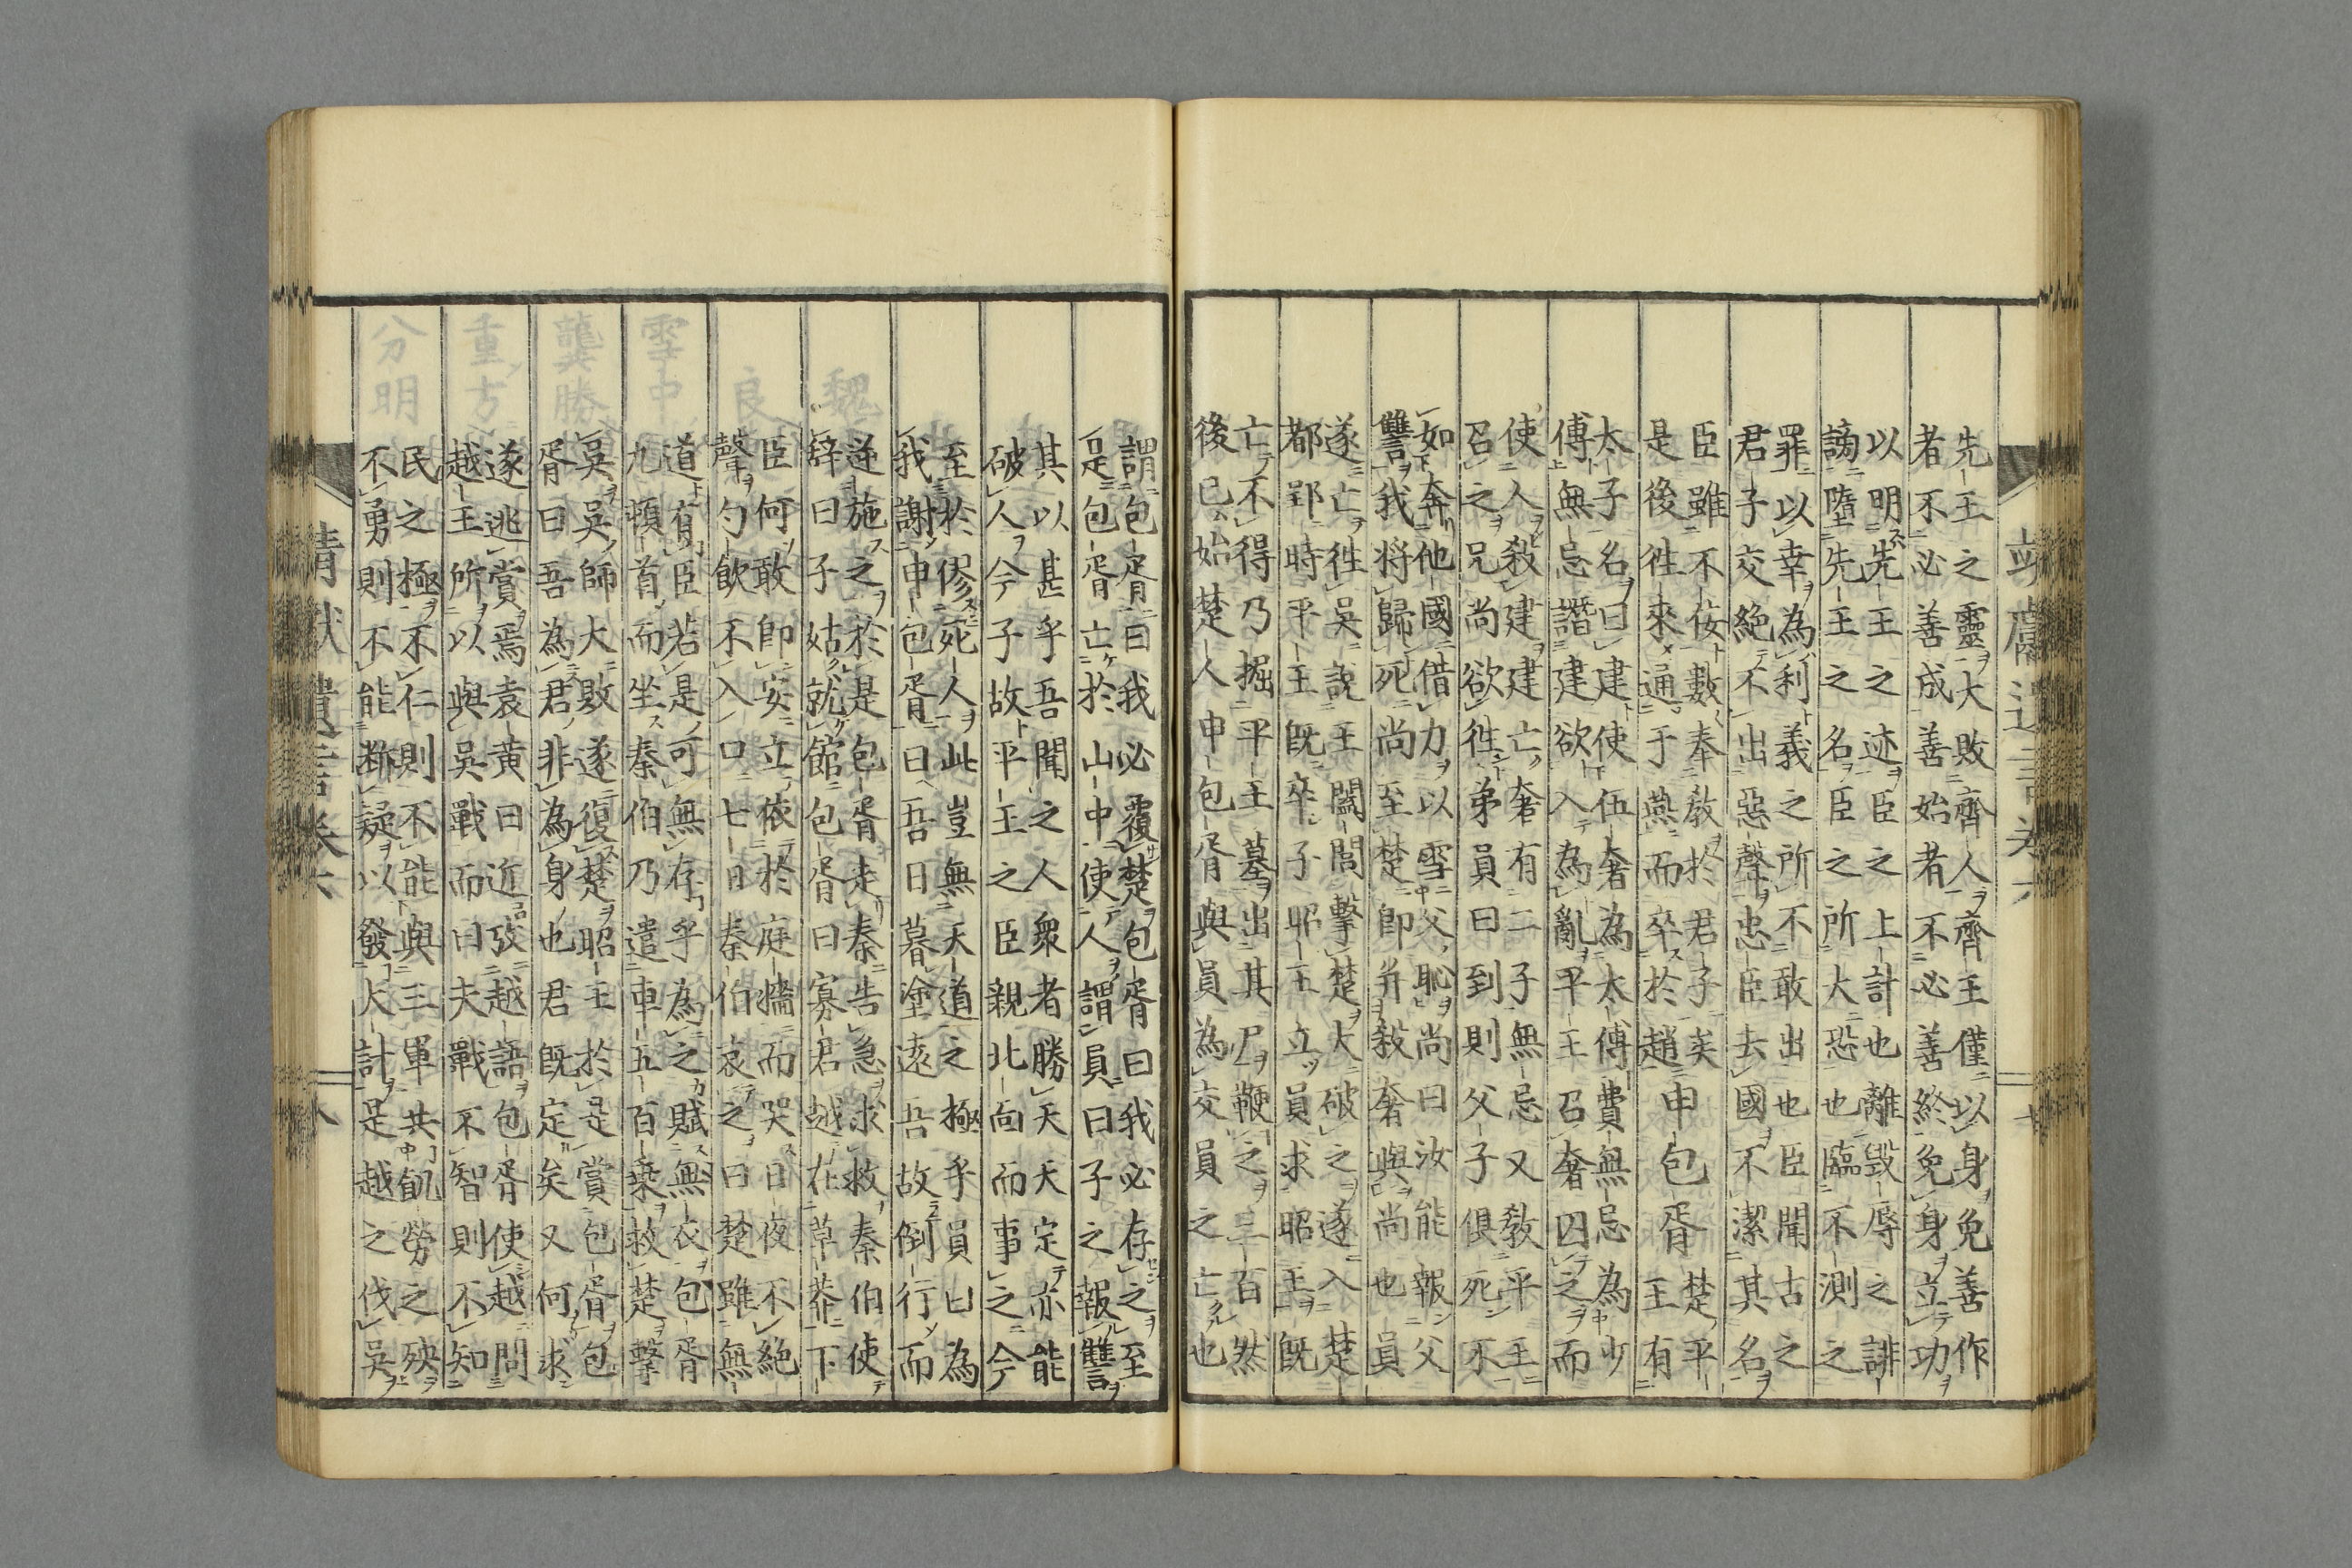 靖獻遺言巻六
七
先王之靈大敗齊人齊王僅以身免善作
者不必善成善始者不必善終免身立功
以明先王之迹臣之上計也離毀辱之誹
謗墮先王之名臣之所大恐也臨不測之
罪以幸為利義之所不敢出也臣聞古之
君子交絶不出惡聲忠臣去國不潔其名
臣雖不佞數奉教於君子矣
是後徃來通于燕而卒於趙
申包胥
楚平
王有
太子名曰建使伍奢為太傅費無忌為少
傅無忌譖建欲入為亂平王召奢囚之而
使人殺建建亡奢有二子無忌又教平王
召之兄尚欲徃弟員曰到則父子俱死不
如奔他國借力以雪父恥尚曰汝能報父
讐我将歸死尚至楚即并殺奢與尚也員
遂亡徃吳說王闔閭擊楚大破之遂入楚
都郢時平王既卒子昭王立員求昭王既
亡不得乃掘平王墓出其尸鞭之三百然
後已始楚人申包胥與員為交員之亡也
謂包胥曰我必覆楚包胥曰我必存之至
是包胥亡於山中使人謂員曰子之報讐
其以甚乎吾聞之人衆者勝天天定亦能
破人今子故平王之臣親北向而事之今
至於僇死人此豈無天道之極乎員曰為
我謝申包胥曰吾日暮塗遠吾故倒行而
逆施之於是包胥走秦告急求救秦伯使
辞曰子姑就館包胥曰寡君越在草莽下
臣何敢即安立依於庭牆而哭日夜不絶
聲勺飲不入口七日秦伯哀之曰楚雖無
道有臣若是可無存乎為之賦無衣包胥
九頓首而坐秦伯乃遣車五百乗救楚擊
吳吳師大敗遂復楚昭王於是賞包胥包
胥曰吾為君非為身也君既定矣又何求
遂逃賞焉袁黄曰近攷越語包胥使越問
越王所以與吳戰而曰夫戰不智則不知
民之極不仁則不能與三軍共飢勞之殃
不勇則不能断疑以發大計是越之伐吳
靖獻遺言巻六
八